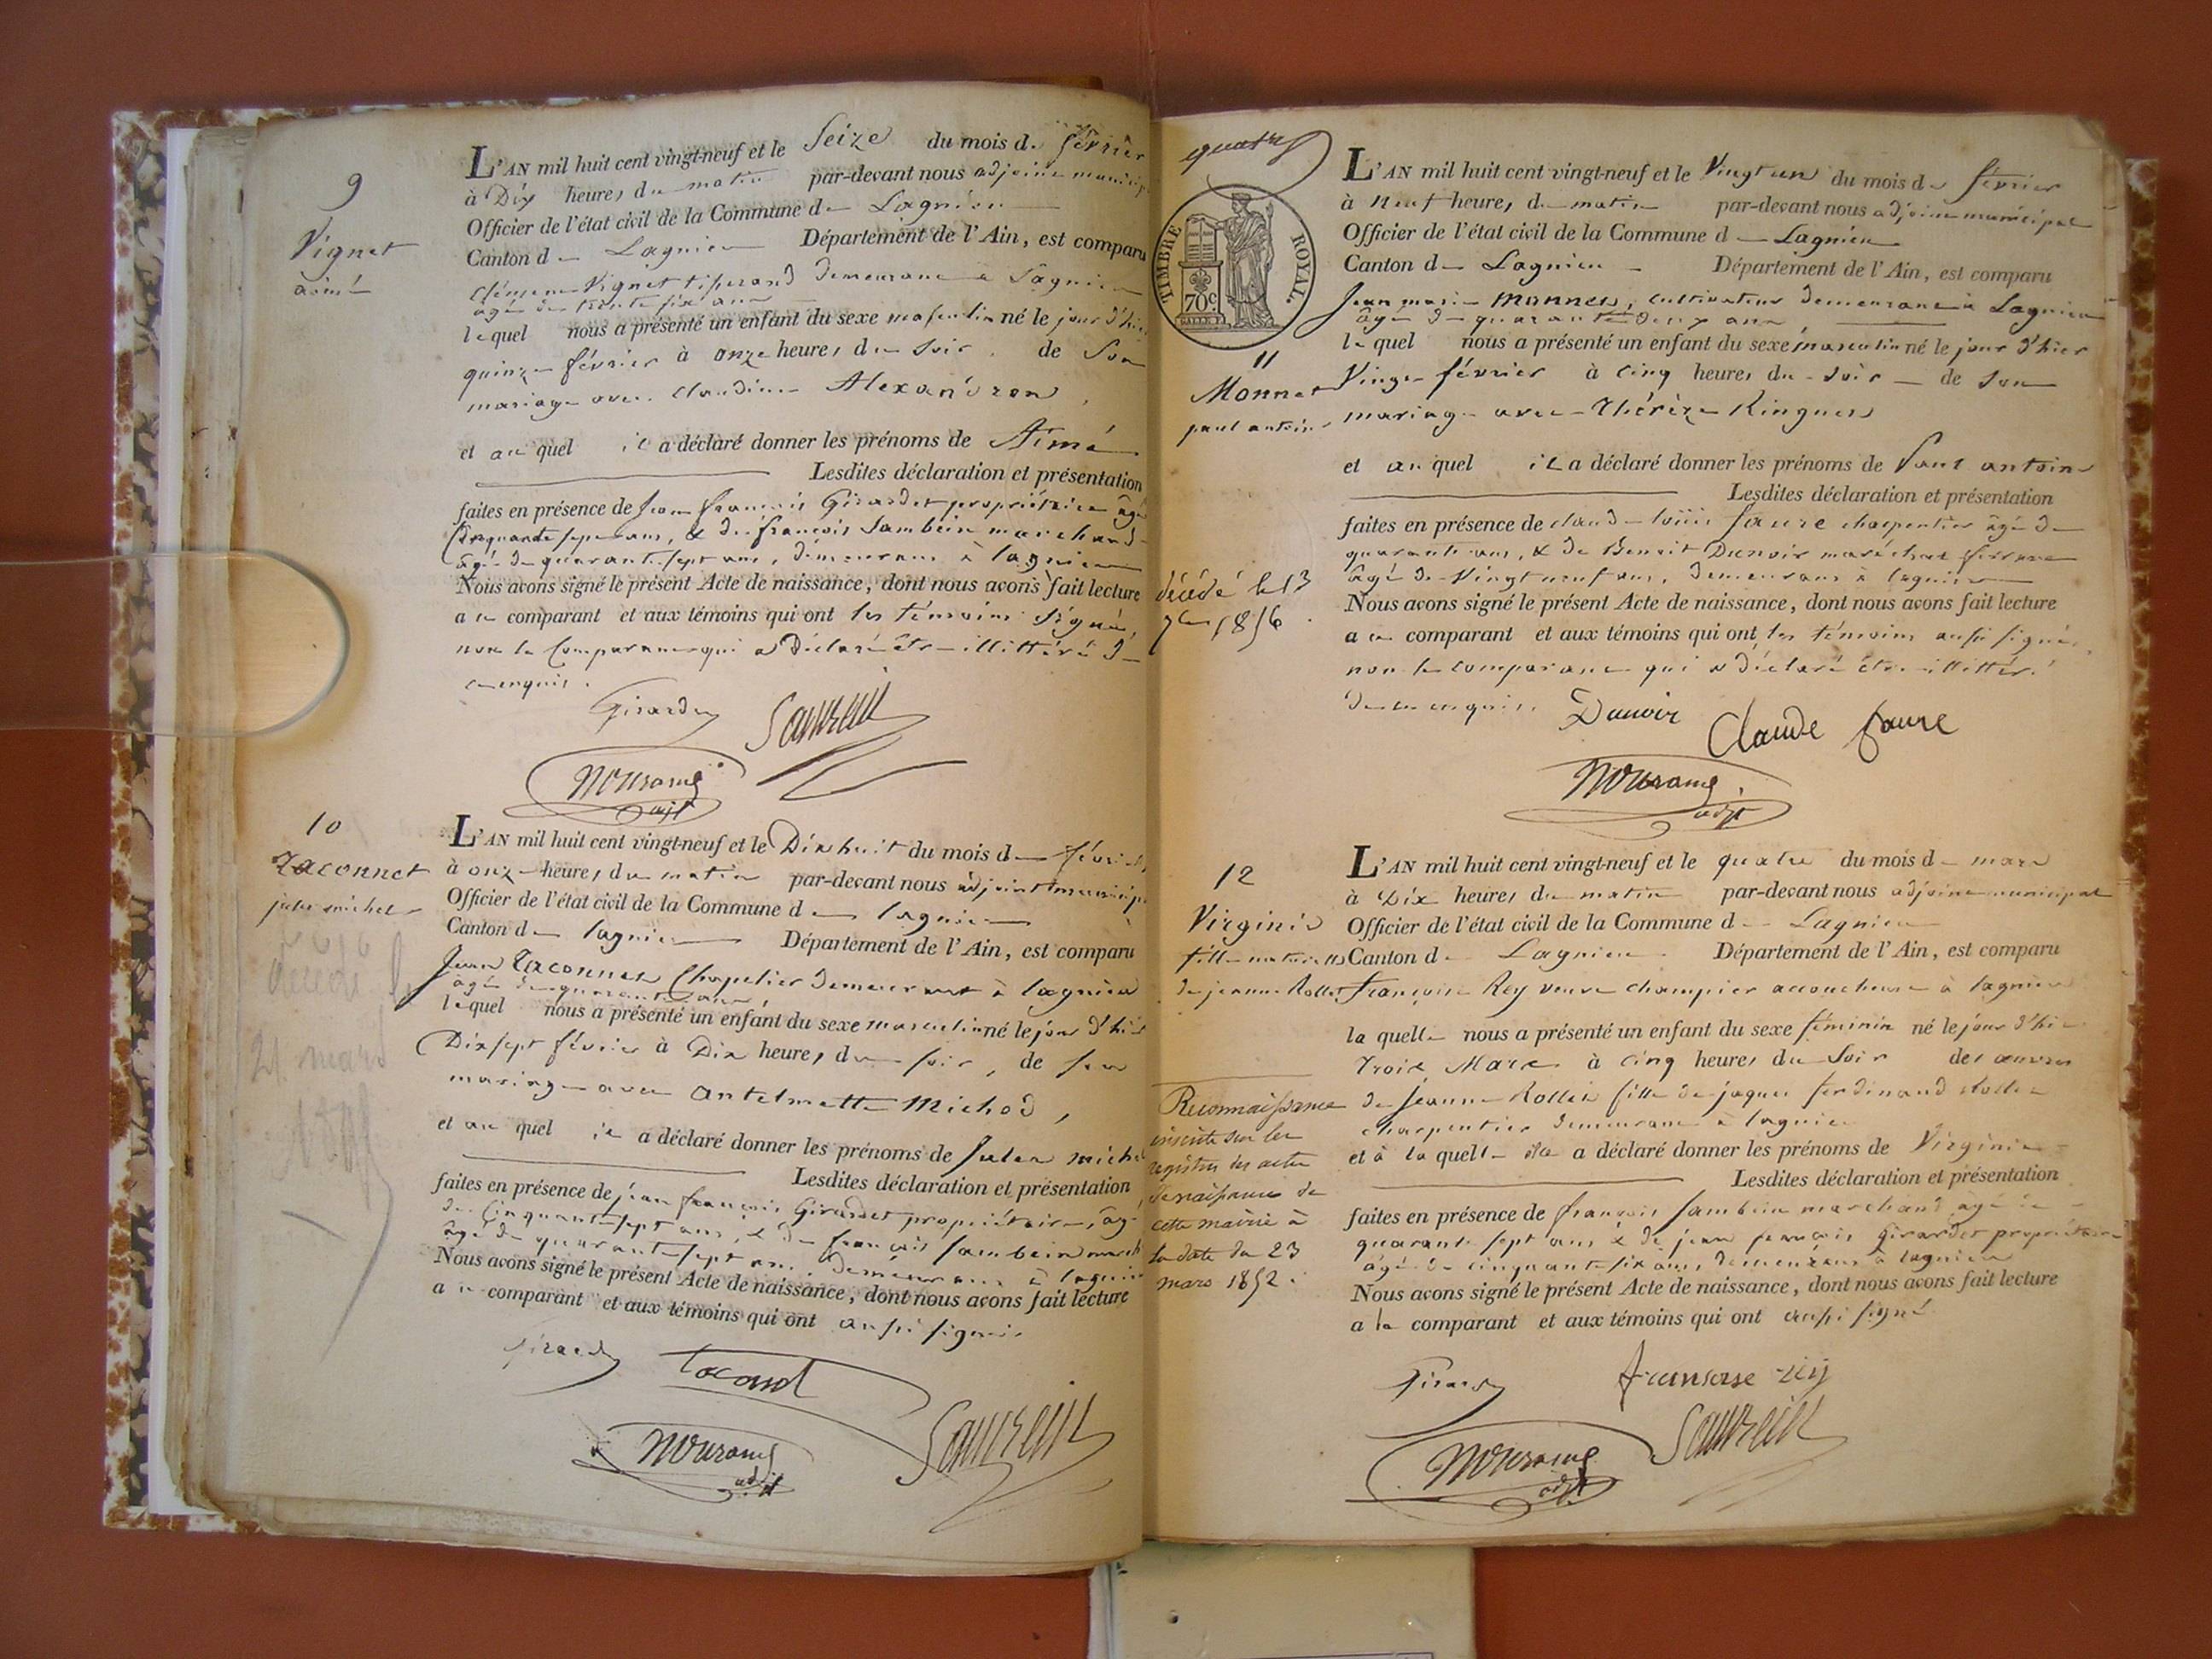 9
Vignet
aimé
L'AN mil huit cent vingt-neuf et le Seize du mois de février
à Dix heures du matin par-devant nous adjoint municip
Officier de l'état civil de la Commune de Lagnieu
Canton de Lagnieu Département de l'Ain, est comparu
Clément Vignet tisserand demeurant à Lagnieu
âgé de trente six ans
lequel nous a présenté un enfant du sexe masculin né le jour d'hier
quinze février à onze heures du soir, de son
mariage avec Claudine Alexandron,
et au quel il a déclaré donner les prénoms de Aimé
Lesdites déclaration et présentation
faites en présence de Jean françois Girardet propriétaire âgé
Cinquante sept ans, & de françois Sambein marchand
âgé de quarante sept ans, demeurans à lagnieu
Nous avons signé le présent Acte de naissance, dont nous avons fait lecture
au comparant et aux témoins qui ont les témoins signé,
non le Comparant qui a Déclaré être illittéré de
ce enquis.
Girardet Sambein
adjt
10
Taconnet
jules michel
décédé le
21 mars
L'AN mil huit cent vingt-neuf et le Dix huit du mois de février
à onze heures du matin par-devant nous adjoint municip
Officier de l'état civil de la Commune de lagnieu
Canton de lagnieu Département de l'Ain, est comparu
Jean Taconnet Chapelier demeurant à lagnieu
âgé de quarante ans
lequel nous a présenté un enfant du sexe masculin né le jour d'hier
Dix sept février à Dix heures du soir, de son
mariage avec Antelmette Michod,
et au quel il a déclaré donner les prénoms de Jules miche
Lesdites déclaration et présentation
faites en présence de jean françois Girardet propriétaire, âgé
de Cinquante sept ans, & de françois Sambein march
âgé de quarante sept ans, demeurans à lagnieu
Nous avons signé le présent Acte de naissance, dont nous avons fait lecture
au comparant et aux témoins qui ont aussi signé.
Girardet Sambein
adjt
quatre
TIMBRE ROYAL.
70c.
11
Monnet
paul antoine
décédé le 13
7bre 1856
L'AN mil huit cent vingt-neuf et le Vingt un du mois de février
à Neuf heures du matin par-devant nous adjoint municipal
Officier de l'état civil de la Commune de Lagnieu
Canton de Lagnieu Département de l'Ain, est comparu
Jean marie Monnet, cultivateur demeurant à Lagnieu
âgé de quarante deux ans
lequel nous a présenté un enfant du sexe masculin né le jour d'hier
Vingt février à cinq heures du soir de son
mariage avec Thérèze Ringuet
et au quel il a déclaré donner les prénoms de Paul antoine
Lesdites déclaration et présentation
faites en présence de claude louis faure charpentier âgé de
quarante ans, & de Benoit Dunoir maréchal ferrant
âgé de vingt neuf ans, demeurans à lagnieu
Nous avons signé le présent Acte de naissance, dont nous avons fait lecture
au comparant et aux témoins qui ont les témoins aussi signé,
non le comparant qui a déclaré être illittéré
de ce enquis. Dunoir Claude faure
adjt
12
Virginie
fille naturelle
de jeanne Rollet
Reconnaissance
inscrite sur les
registres des actes
de naissance de
cette mairie à
la date du 23
mars 1852.
L'AN mil huit cent vingt-neuf et le quatre du mois de mars
à Dix heures du matin par-devant nous adjoint municipal
Officier de l'état civil de la Commune de Lagnieu
Canton de Lagnieu Département de l'Ain, est comparu
françoise Rey veuve champier accoucheuse à lagnieu
laquelle nous a présenté un enfant du sexe féminin né le jour d'hier
Trois Mars à cinq heures du soir des œuvres
de jeanne Rollet fille de jaques ferdinand Rollet
charpentier demeurant à lagnieu
et à la quelle elle a déclaré donner les prénoms de Virginie
Lesdites déclaration et présentation
faites en présence de françois sambein marchand âgé de
quarante sept ans & de jean françois Girardet propriétaire
âgé de cinquante six ans, demeurans à lagnieu
Nous avons signé le présent Acte de naissance, dont nous avons fait lecture
a la comparant et aux témoins qui ont aussi signé
Girardet françoise rey
Sambein
adjt